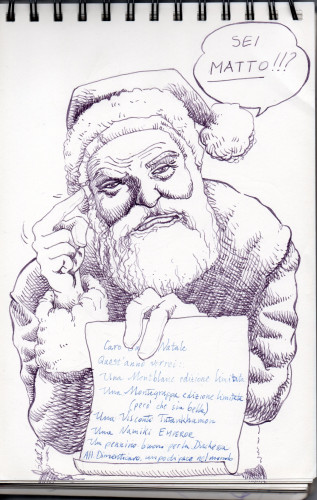 SEI
MATTO!!?
Caro Natale
Quest'anno vorrei:
Una Montblanc edizione limitata
Una Montegrappa edizione limitata
(però che sia bella)
Una Visconti Tutankhamon
Una Namiki Emperor
Un pennino buono per la Duchessa
Dimenticavo: un po' di pace nel mondo